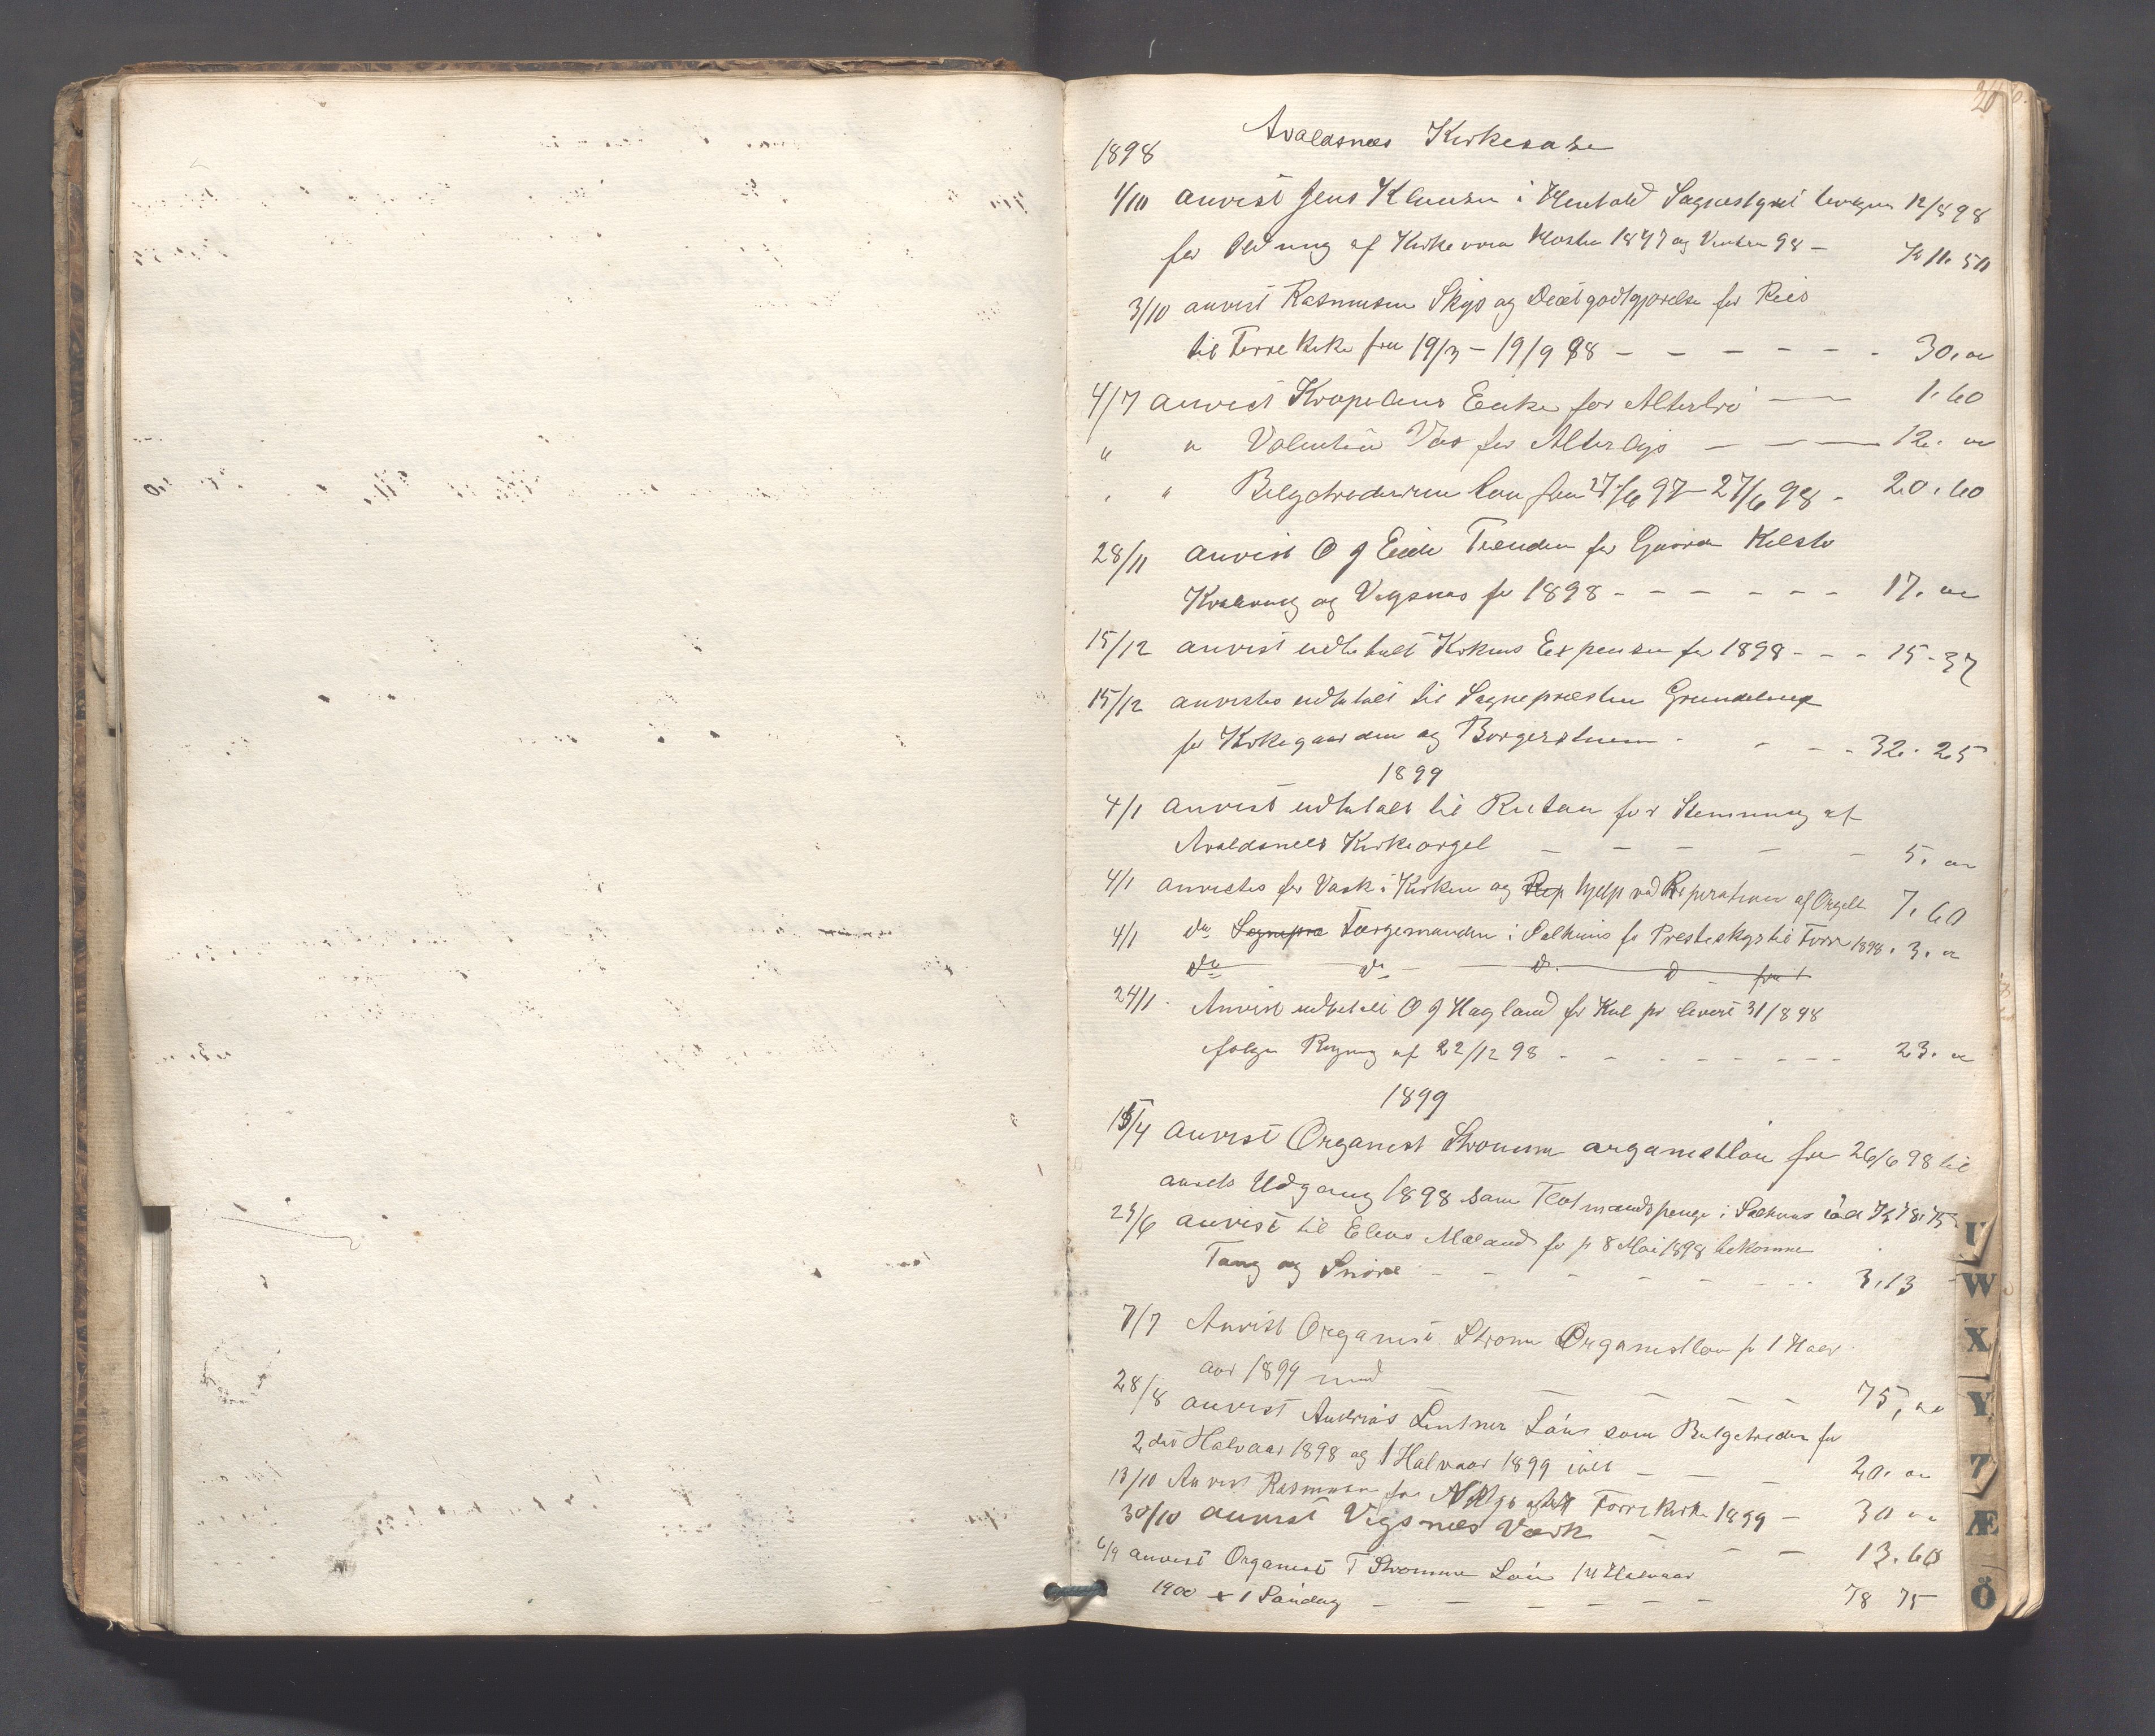 20
Avaldsnæs Kirkesave
1898
1/10 anvist Jens Klausen i Henhold Sognestyret 12/8 98
for af Kirkeovn Høsten 1897 og Vinteren 98 – Kr 11. 50
3/10 anvist Rasmussen Skys og Diætgodtgjørelse for Reis
til Torre Kirke fra 19/3 – 19/9 98 – – – – – – 30. oo
4/7 anvist Enke for Alterbrø — — 1. 60
" " Valentin Vas for Alterlys — — — 12. oo
" " Belgtræderen Løn fra 27/6 97 – 27/6 98 – 20. 60
28/11 anvist O J Eide Tienden for Gaarden
og Vigsnæs for 1898 – – – – – – 17. oo
15/12 anvist udbetalt Kirkens Expenser for 1898 – – – 15 – 37
15/12 anvistes udbetalt til Sognepresten
for Kirkegaarden og Borgerstuen – – – – 32. 25
1899
4/1 anvist udbetalt til for Stemning af
Avaldsnæs Kirkeorgel – – – – – 5. oo
4/1 anvistes for Vask i Kirken og Rep hjelp ved Reperation af Orgelet 7. 60
4/1 do Sognepræ Færgemanden i Salhuus for Presteskys til Torre 1898. 3. oo
do do d. d for 1
24/1. Anvist udbetalt O J Hagland for Kul pr levert 31/8 98
følge Regning af 22/12 98 – – – – – – – – 23. oo
1899
15/4 anvist Organist Stromme organistløn fra 26/6 98 til
aarets Udgang 1898 samt i Salhuus ialt Kr 78. 75
29/6 anvist til Elens Mæland for pr 8 Mai 1898 bekomne
Tang og Snöre – – – – – – – – 3. 13
7/7 Anvist Organist Strom Organistløn for 1 Halv
aar 1899 med – – – – – 75, oo
28/8 anvist Andreas Lentner Lön som Belgetræder for
2det Halvaar 1898 og 1 Halvaar 1899 ialt – – – 20. oo
13/10 Anvist Rasmusen for Torre Kirke 1899 – 30 oo
30/10 anvist Vigsnæs Værk – – – 13. 60
6/9 anvist Organist T Stromme Lön 1st Halvaar
1900 + 1 Söndag – – – – – – 78 75
U
W
X
Y
Z
Æ
Ö